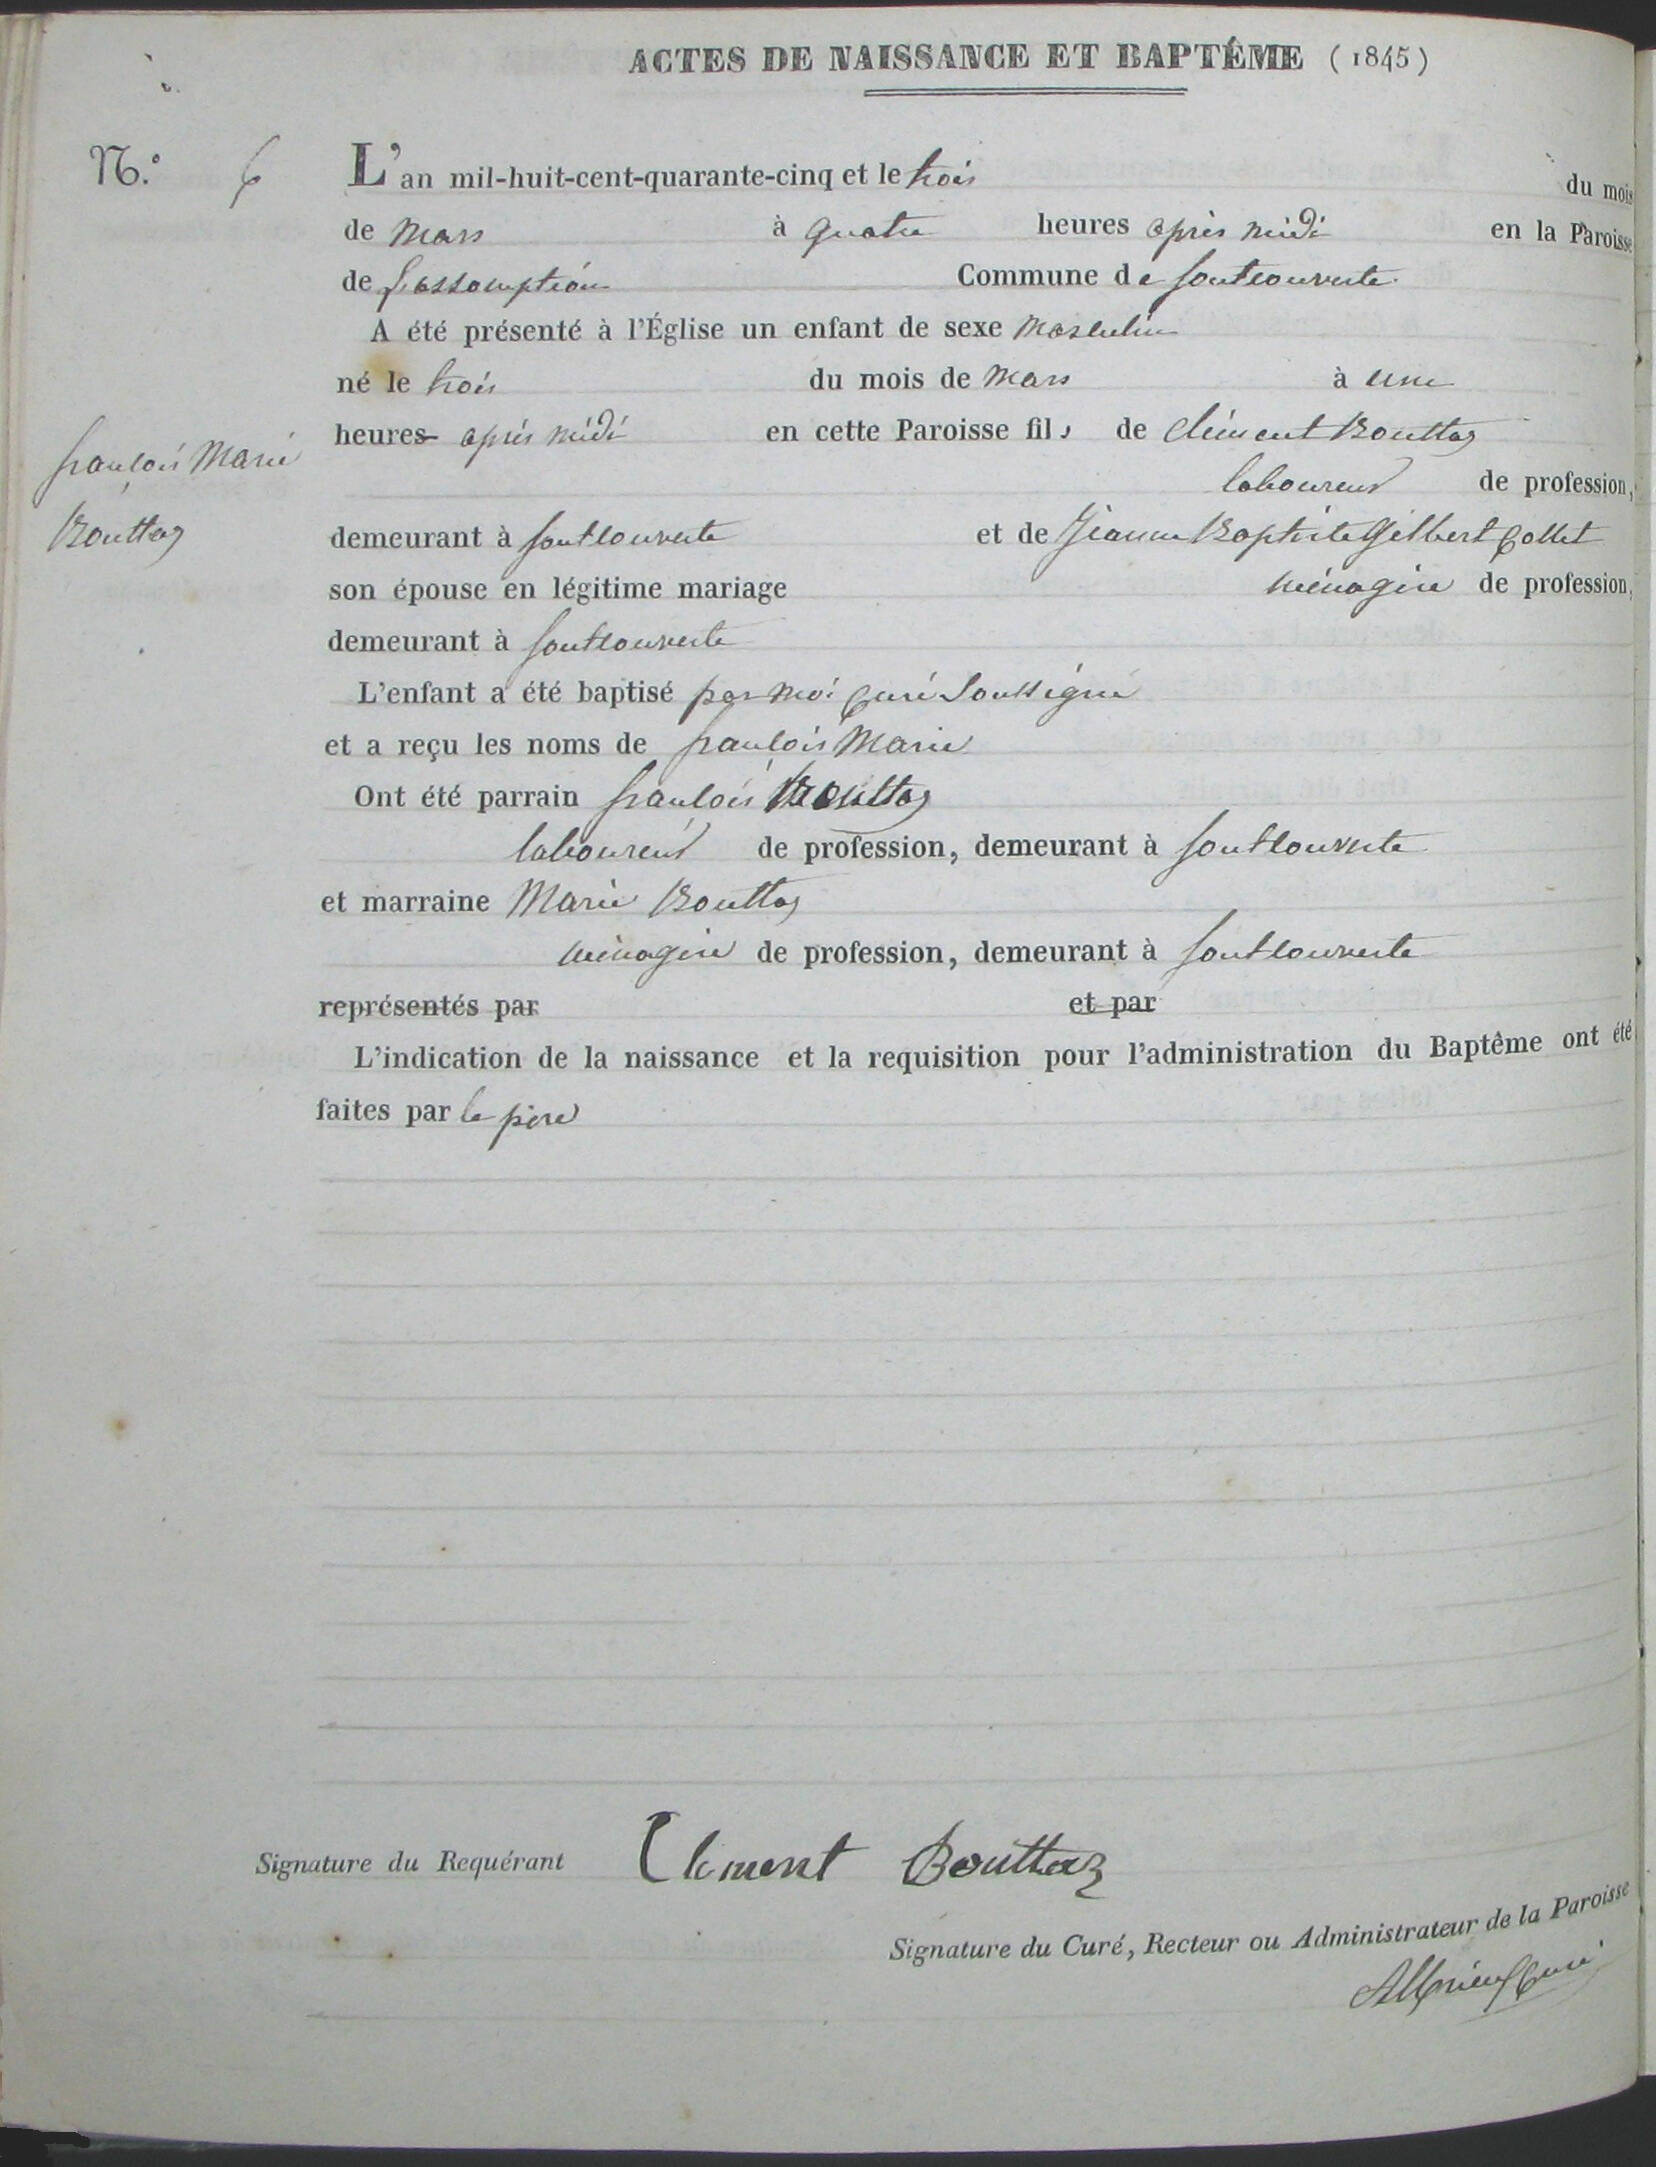 ACTES DE NAISSANCE ET BAPTÊME (1845)
N.° 6
L'an mil-huit-cent-quarante-cinq et le trois du mois
de Mars à quatre heures après midi en la Paroisse
de L'assomption Commune de Fontcouverte
A été présenté à l'Église un enfant de sexe Masculin
né le trois du mois de Mars à une
heures après midi en cette Paroisse fils de Clément Bouttaz
laboureur de profession,
françois Marie
Bouttaz
demeurant à fontcouverte et de Jeanne Baptiste Gilbert Collet
son épouse en légitime mariage ménagère de profession,
demeurant à fontcouverte
L'enfant a été baptisé par moi Curé Soussigné
et a reçu les noms de françois Marie
Ont été parrain françois Bouttaz
laboureur de profession, demeurant à fontcouverte
et marraine Marie Bouttaz
ménagère de profession, demeurant à fontcouverte
représentés par et par
L'indication de la naissance et la requisition pour l'administration du Baptême ont été
faites par le père
Signature du Requérant Clement Bouttaz
Signature du Curé, Recteur ou Administrateur de la Paroisse
Curé